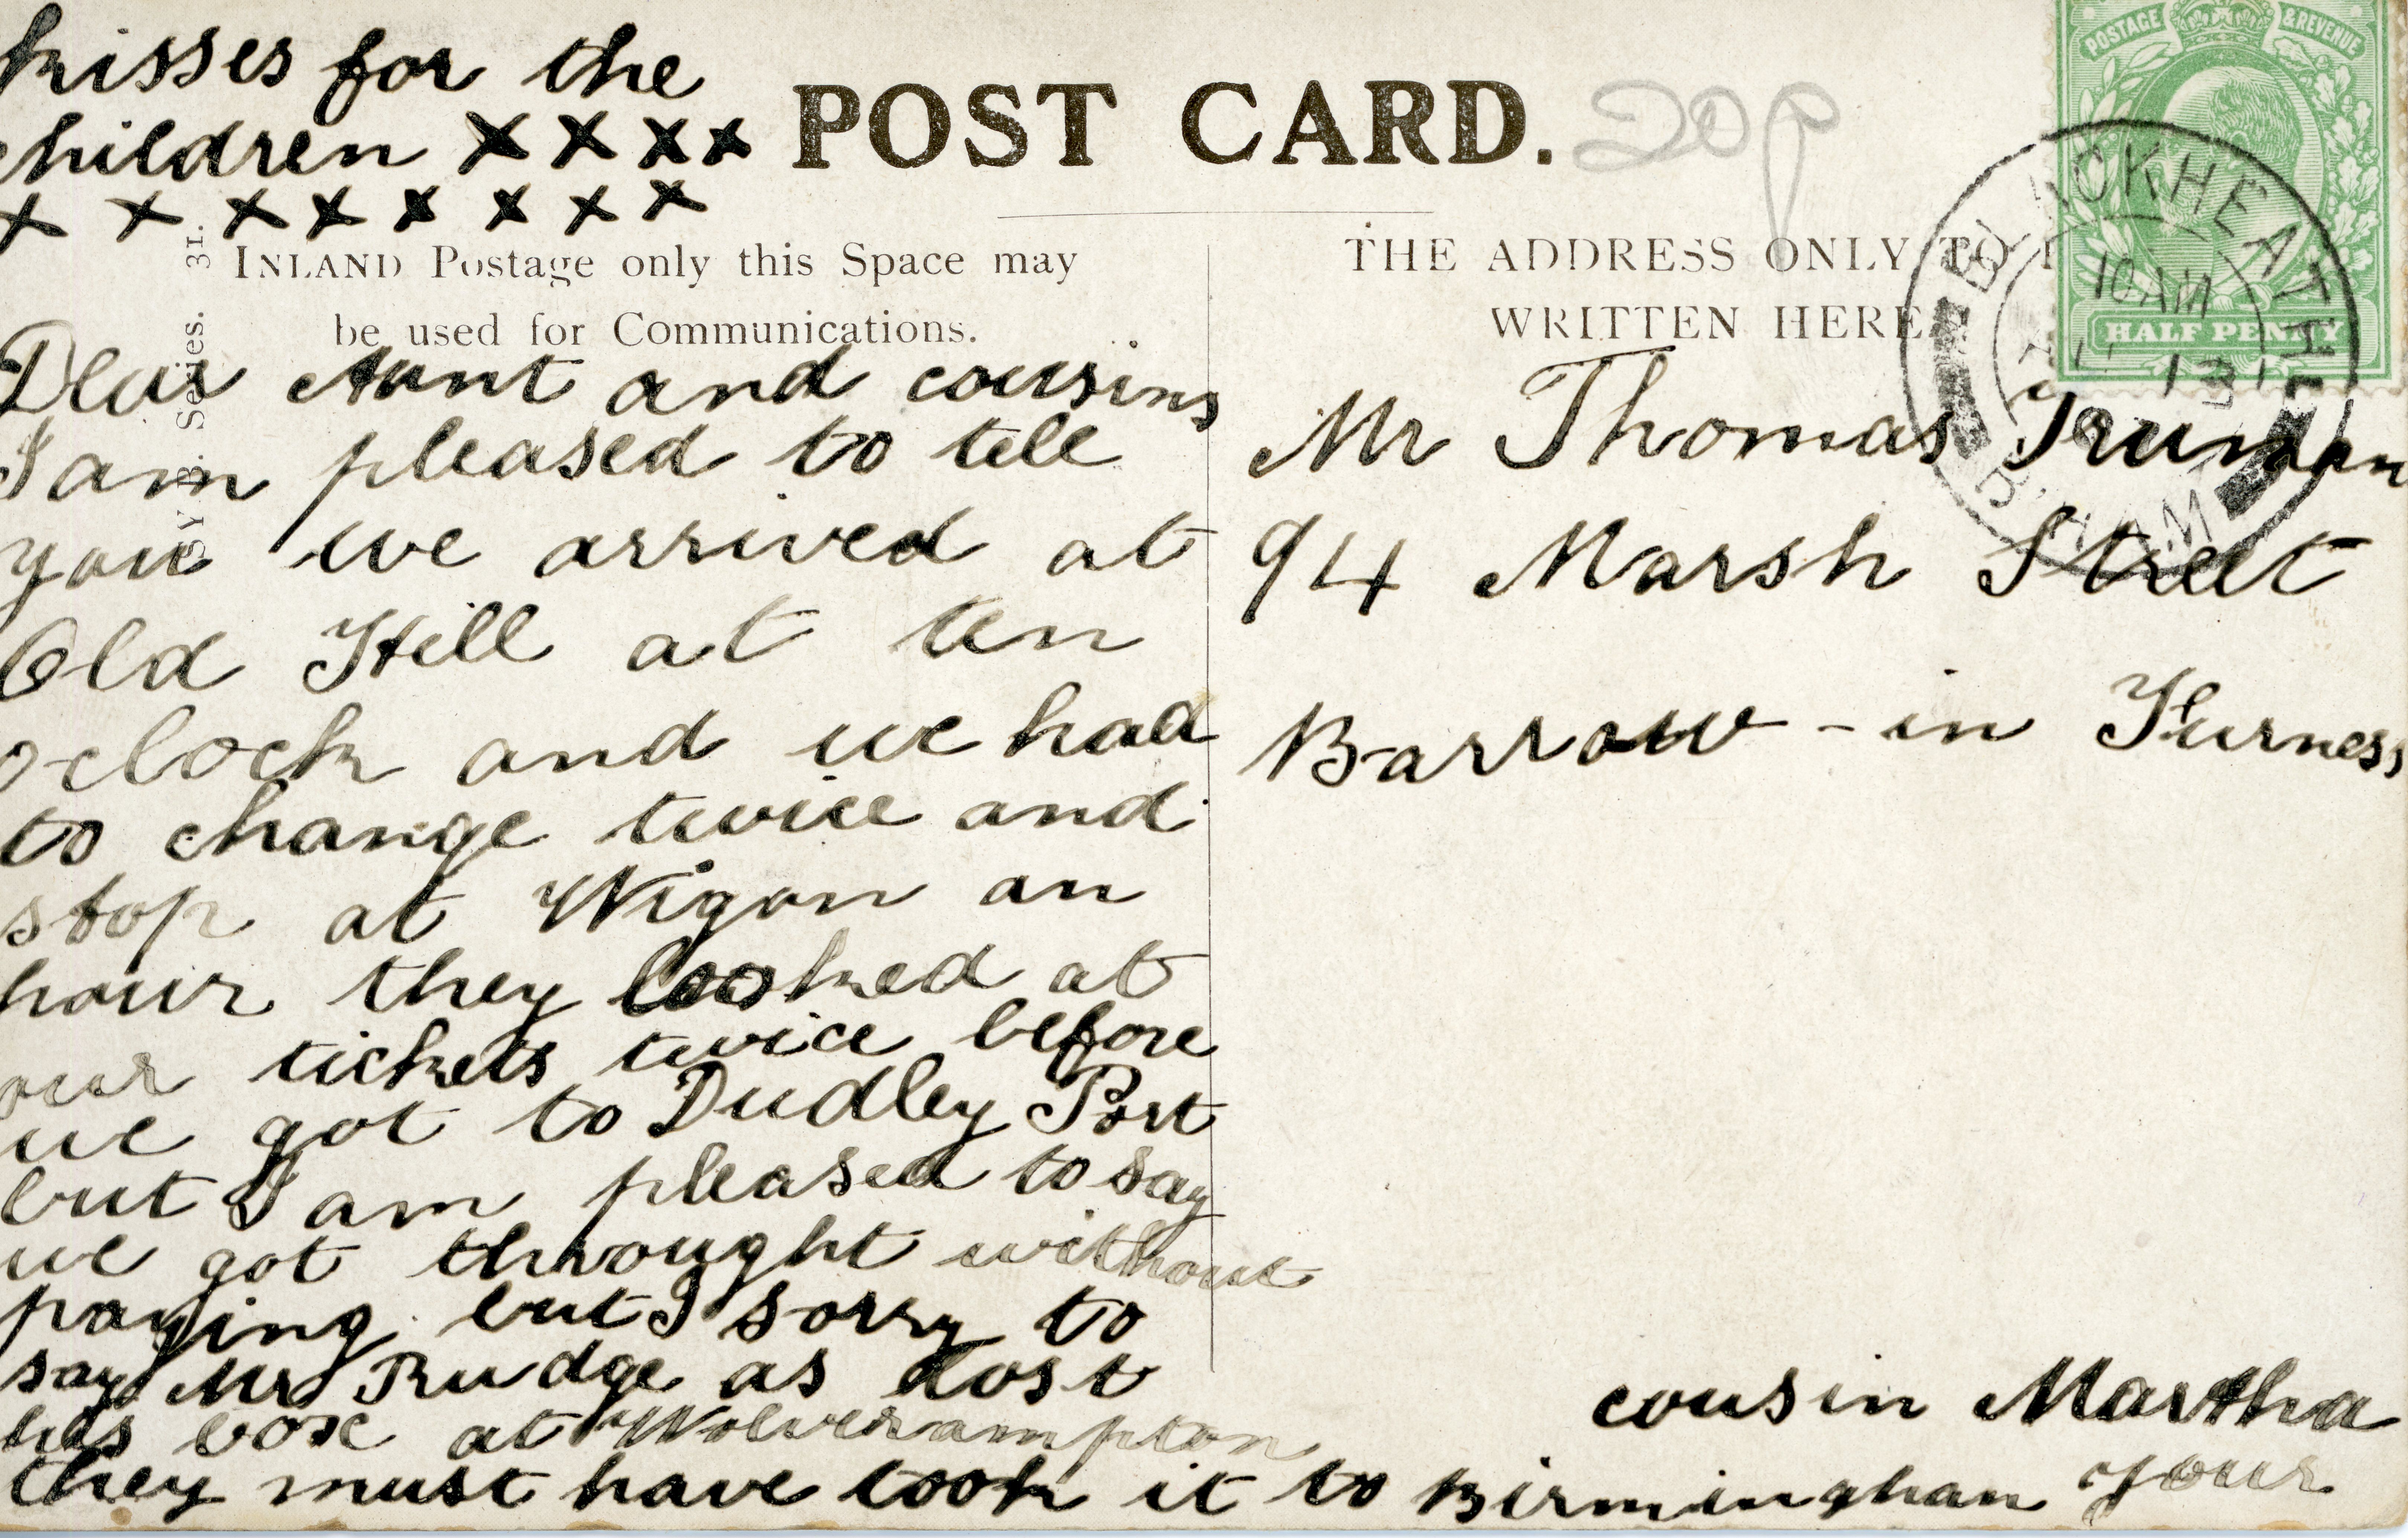 kisses for the
children X X X X
X X X X X X X X
POST CARD.
20p
POSTAGE & REVENUE
HALF PENNY
BLACKHEATH
10 AM
13
B'HAM
INLAND Postage only this Space may
be used for Communications.
THE ADDRESS ONLY TO
WRITTEN HERE
Series. 31.
Dear Aunt and cousins
I am pleased to tell
you we arrived at
Old Hill at ten
oclock and we had
to change twice and
stop at Wigan an
hour they looked at
our tickets twice before
we got to Dudley Port
but I am pleased to say
we got throught without
paying but I sorry to
say Mr Rudge as lost
his box at Wolverampton
they must have took it to Birmingham Your
cousin Martha
Mr Thomas Truman
94 Marsh Street
Barrow-in Furness